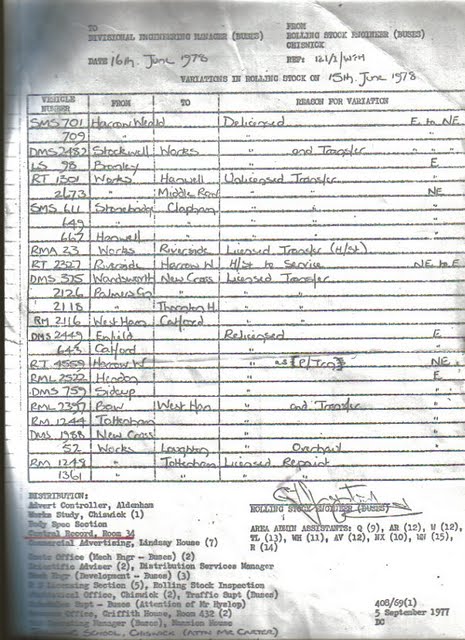 TO
FROM
DIVISIONAL ENGINEERING MANAGER (BUSES)
ROLLING STOCK ENGINEER (BUSES)
CHISWICK
DATE 16th June 1978
REF: 121/1/WFH
VARIATIONS IN ROLLING STOCK ON 15th June 1978
VEHICLE NUMBER FROM TO REASON FOR VARIATION
SMS 701 Harrow Weald Delicensed E to NE
709 " " "
DMS 2482 Stockwell Works " and Transfer " " "
LS 98 Bromley " " " E
RT 1301 Works Hanwell Unlicensed Transfer "
2673 " Middle Row " " NE
SMS 611 Stonebridge Clapham " " "
649 " " " " "
667 Hanwell " " " "
RMA 23 Works Riverside Licensed Transfer (H/St)
RT 2327 Riverside Harrow W. H/St to Service NE to E
DMS 575 Wandsworth New Cross Licensed Transfer
2126 Palmers Gn " " "
2118 " Thornton H. " "
RM 2116 West Ham Catford " "
DMS 2449 Enfield Relicensed E
643 Catford " "
RT 4559 Harrow W. " as [P/Trng] NE
RML 2522 Hendon " E
DMS 759 Sidcup " "
RML 2397 Bow West Ham " and Transfer "
RM 1244 Tottenham " " "
DMS 1988 New Cross " " "
52 Works Loughton " Overhaul "
RM 1248 " Tottenham Licensed Repaint
1361 " " " "
DISTRIBUTION:
Advert Controller, Aldenham
Works Study, Chiswick (1)
Body Spec Section
Central Record, Room 34
Commercial Advertising, Lindsay House (7)
ROLLING STOCK ENGINEER (BUSES)
AREA ADMIN ASSISTANTS: Q (9), AR (12), W (12),
TL (13), WH (11), AV (12), NX (10), WN (15),
R (14)
Costs Office (Mech Engr - Buses) (2)
Scientific Adviser (2), Distribution Services Manager
Engr (Development - Buses) (3)
Licensing Section (5), Rolling Stock Inspection
Office, Chiswick (2), Traffic Supt (Buses)
Schedules Supt - Buses (Attention of Mr Hyslop)
Office, Griffith House, Room 432 (2)
Manager (Buses), Mansion House
SCHOOL, CHISWICK (ATTN MR CARTER)
408/69(1)
5 September 1977
DC